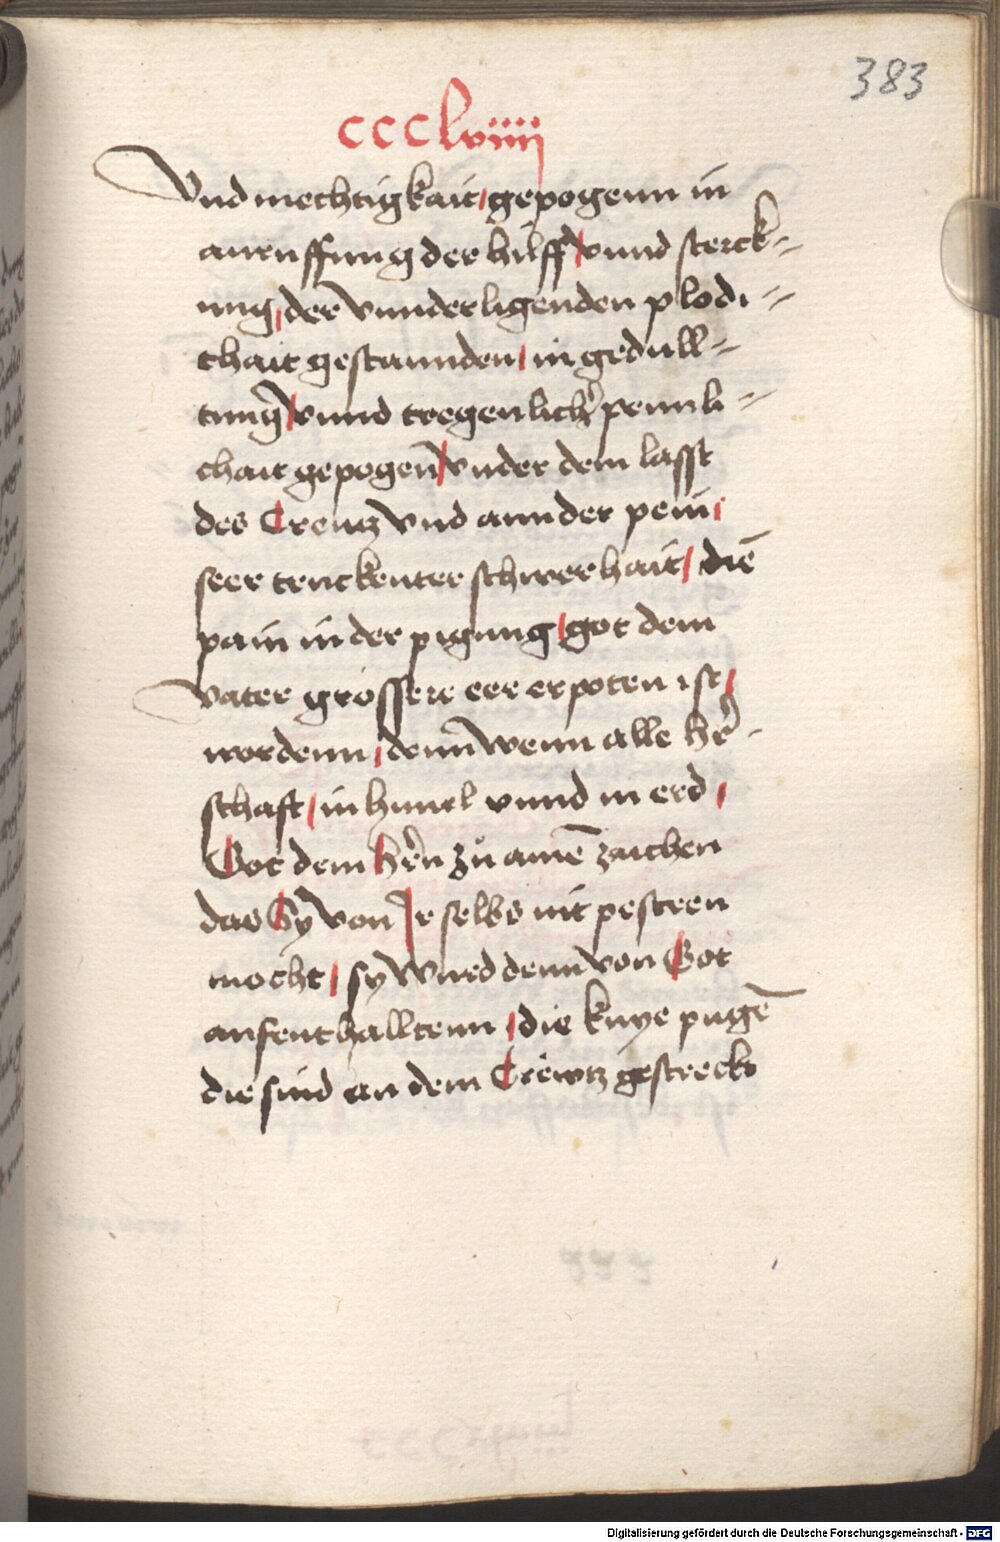 383
ccclviiii
Vnd mechtigkait / gepogenn in
anruffung der hilff / vnnd sterck=
ung / der vnnderligenden plodi=
chait gestannden / in gedull=
tung / vnnd tregenlicher pennli=
chait gepogen̄ / vnder dem lasst
des Creutz vnd annder pein /
seer truckenter schwerhait / diē
pain in der pigung / got dem
vater grossere eer erpoten ist /
wordenn / denn̄ wenn alle her-
schaft / in himel vnnd in erd /
Got dem hern zů ainē zaichen
das Sy von Jr selbs nit pesteen
mocht / sy wurd denn von Got
aufenthalltenn / die knye pugē
die sind an dem Crewtz gestreckt
Digitalisierung gefördert durch die Deutsche Forschungsgemeinschaft - DFG